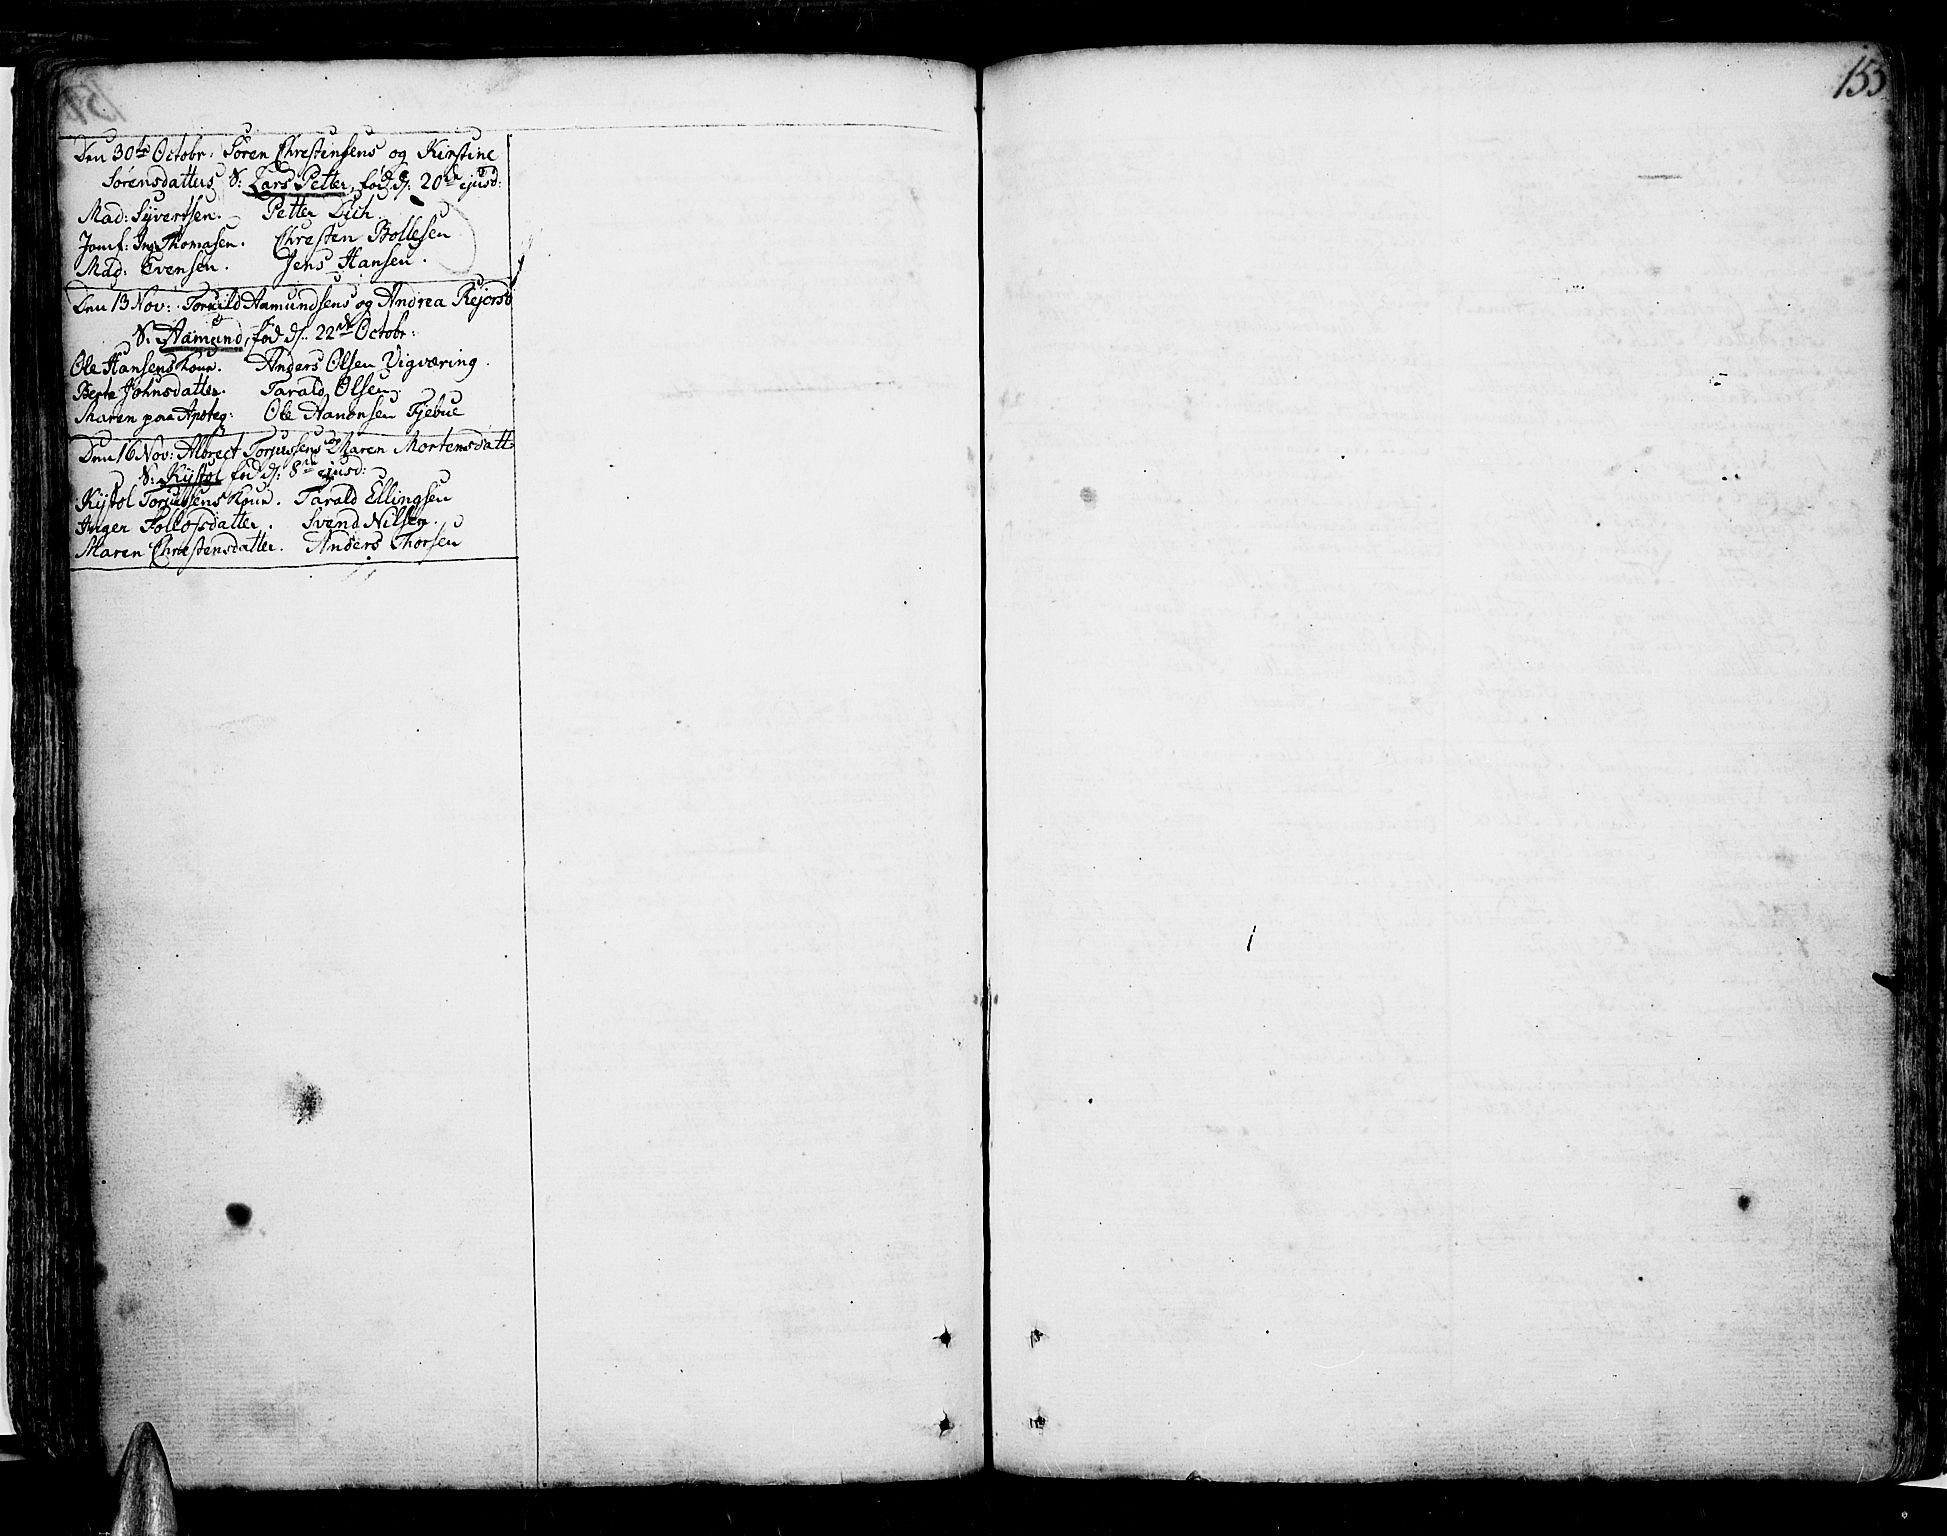 155
Den 30te Octobr: Søren Chrestensens og Kirstine
Sørensdatters S: Lars Petter, fød d: 20de ejusd:
Mad: Syvertsen. Petter Lich
Jomf: Ing Thomasen. Chresten Bollesen
Mad: Evensen. Jens Hansen.
Den 13 Nov: Torkild Aamundsens og Andrea Rejersd
S: Aamund, fød d: 22de Octobr:
Ole Hansens Kone. Anders Olsen Vigværing.
Berte Johnsdatter. Tarald Olsen.
Maren paa Apoteq: Ole Aanonsen Fjebue
Den 16 Nov: Albrect Torjussens og Maren Mortensdatt
S: Kistol fød d: 8de ejusd:
Kistol Torjussens Kone. Tarald Ellingsen
Inger Follofsdatter. Svend Nilsen.
Maren Chrestensdatter. Anders Thorsen